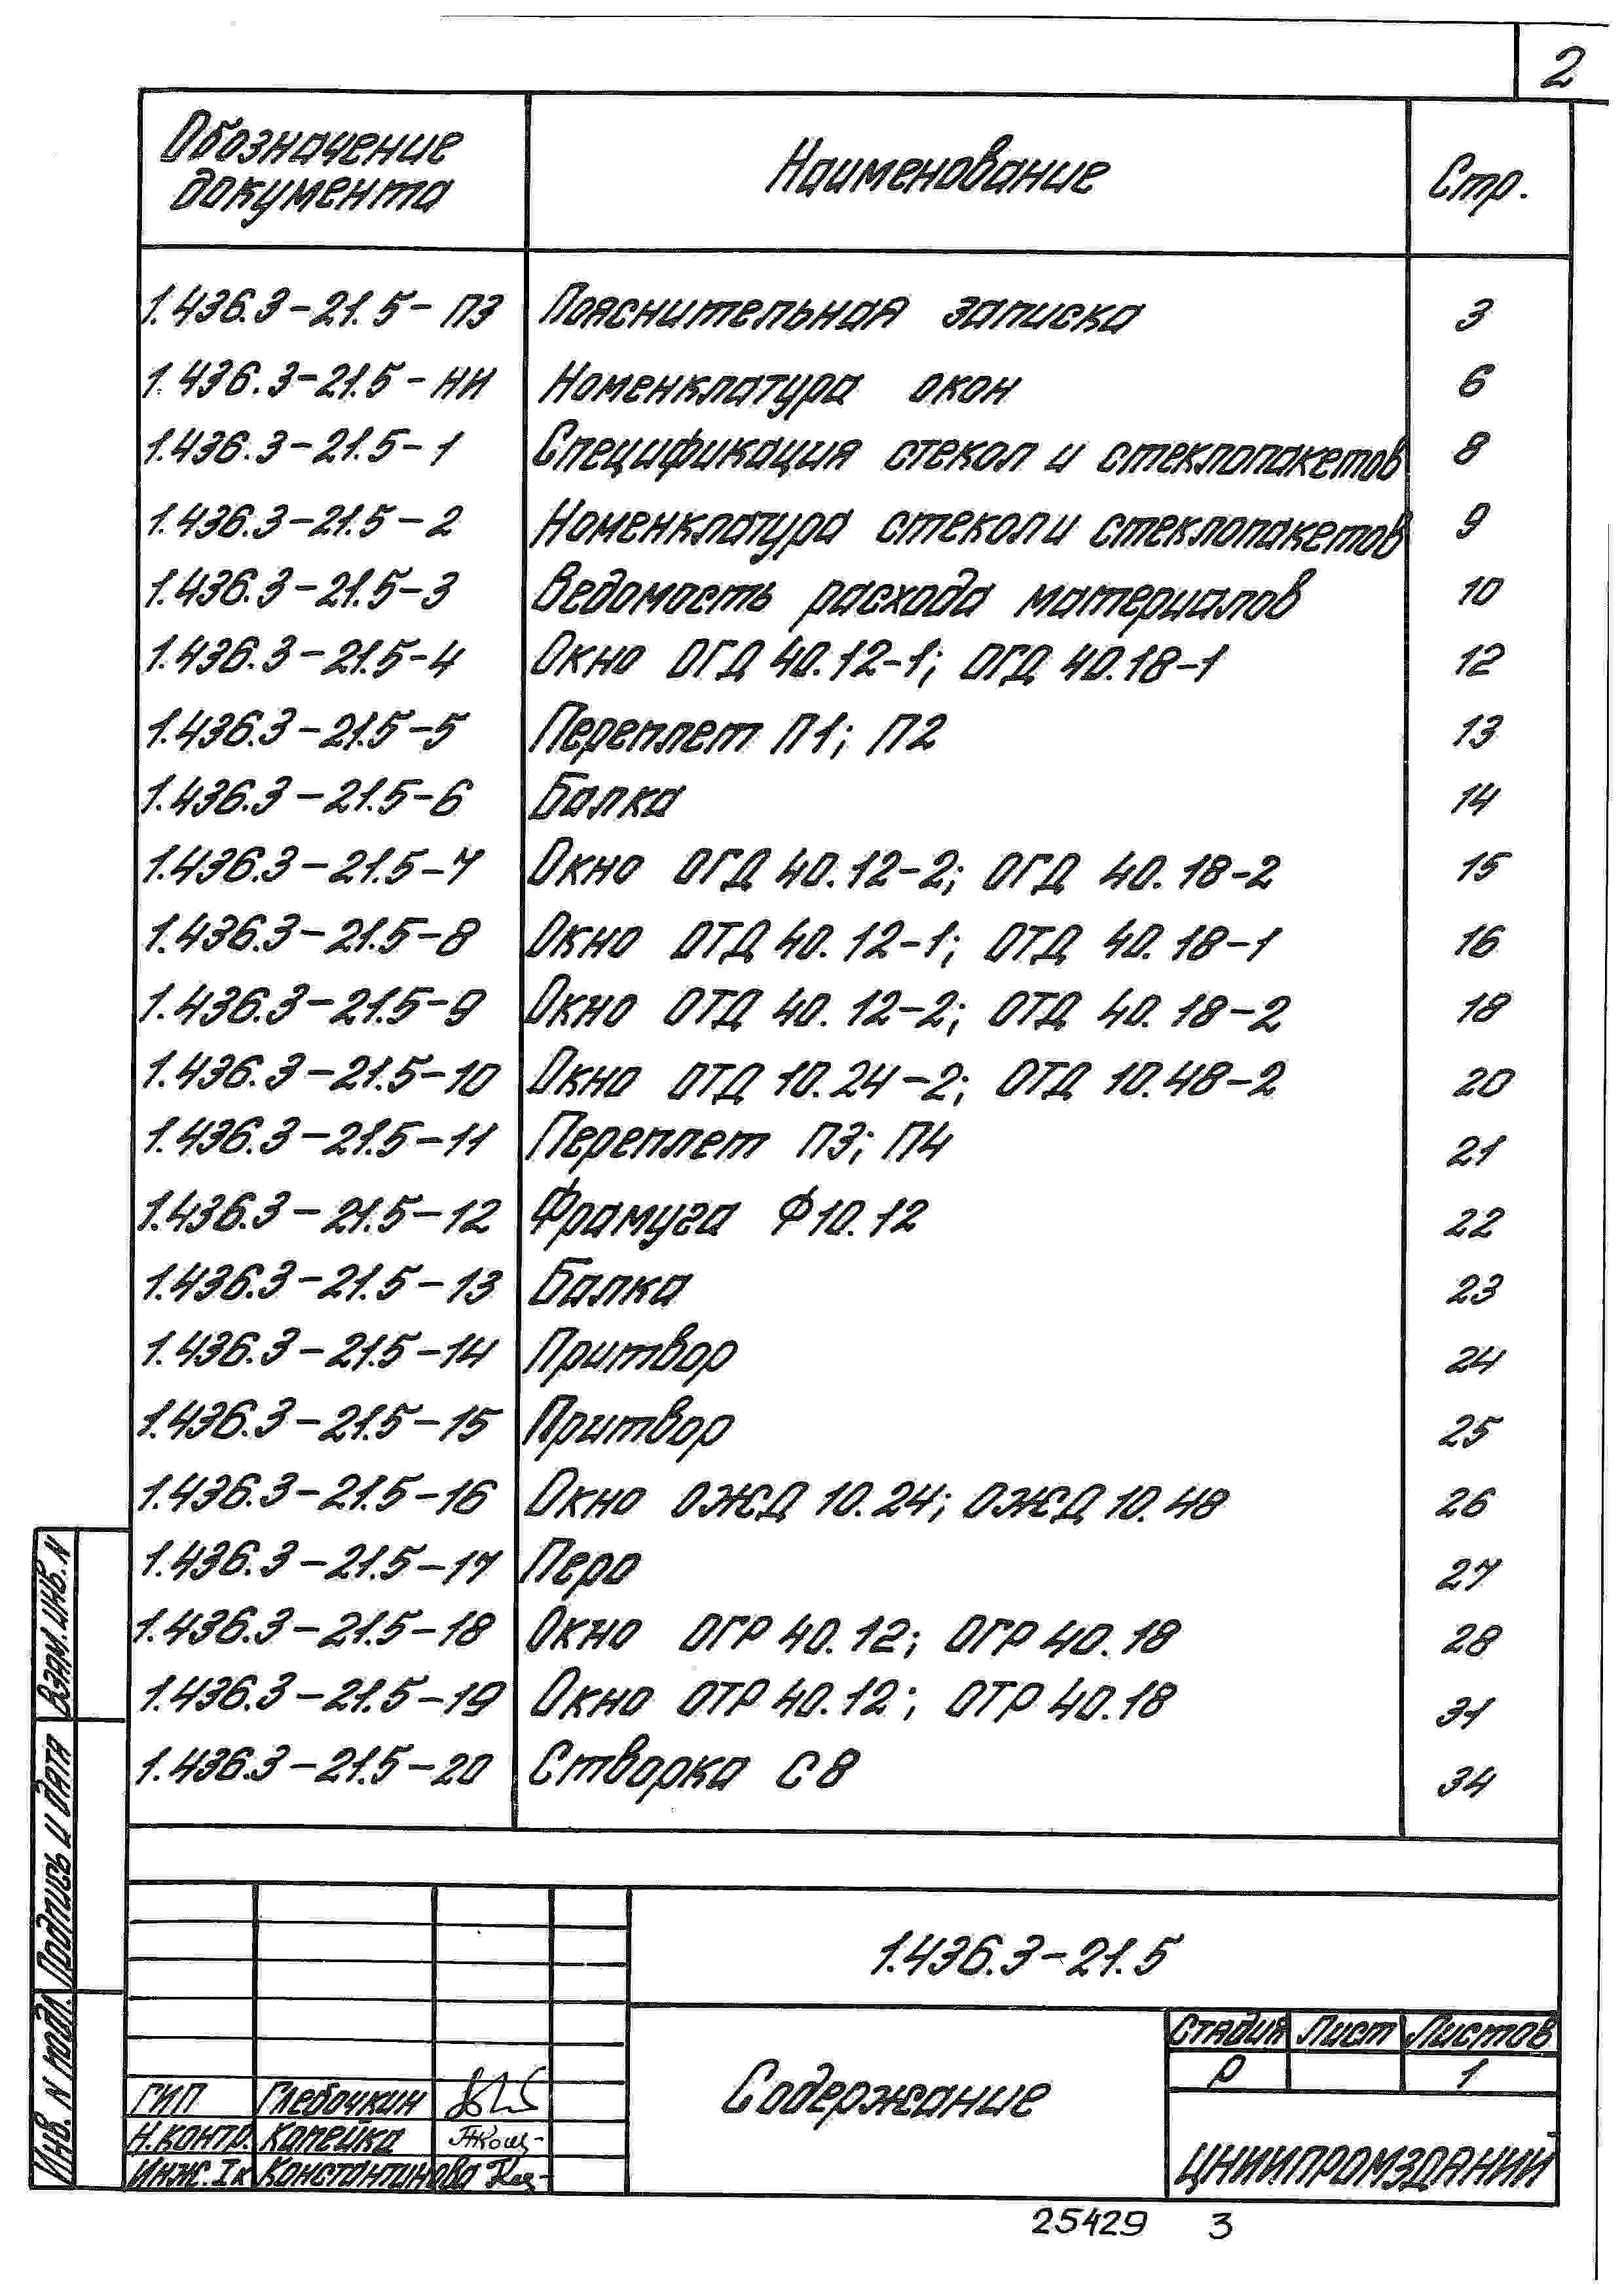 2
Обозначение документа Наименование Стр.
1.436.3-21.5-ПЗ Пояснительная записка 3
1.436.3-21.5-НИ Номенклатура окон 6
1.436.3-21.5-1 Спецификация стекол и стеклопакетов 8
1.436.3-21.5-2 Номенклатура стекол и стеклопакетов 9
1.436.3-21.5-3 Ведомость расхода материалов 10
1.436.3-21.5-4 Окно ОГД 40.12-1; ОГД 40.18-1 12
1.436.3-21.5-5 Переплет П1; П2 13
1.436.3-21.5-6 Балка 14
1.436.3-21.5-7 Окно ОГД 40.12-2; ОГД 40.18-2 15
1.436.3-21.5-8 Окно ОТД 40.12-1; ОТД 40.18-1 16
1.436.3-21.5-9 Окно ОТД 40.12-2; ОТД 40.18-2 18
1.436.3-21.5-10 Окно ОТД 10.24-2; ОТД 10.48-2 20
1.436.3-21.5-11 Переплет П3; П4 21
1.436.3-21.5-12 Фрамуга Ф10.12 22
1.436.3-21.5-13 Балка 23
1.436.3-21.5-14 Притвор 24
1.436.3-21.5-15 Притвор 25
1.436.3-21.5-16 Окно ОЖД 10.24; ОЖД 10.48 26
1.436.3-21.5-17 Перо 27
1.436.3-21.5-18 Окно ОГР 40.12; ОГР 40.18 28
1.436.3-21.5-19 Окно ОТР 40.12; ОТР 40.18 31
1.436.3-21.5-20 Створка С8 34
Взам. инв. N
Подпись и дата
Инв. N подл.
1.436.3-21.5
Содержание
Стадия Лист Листов
Р 1
ГИП Глебочкин
Н.контр. Копейка
Инж. Iк Константинова
ЦНИИПРОМЗДАНИЙ
25429 3